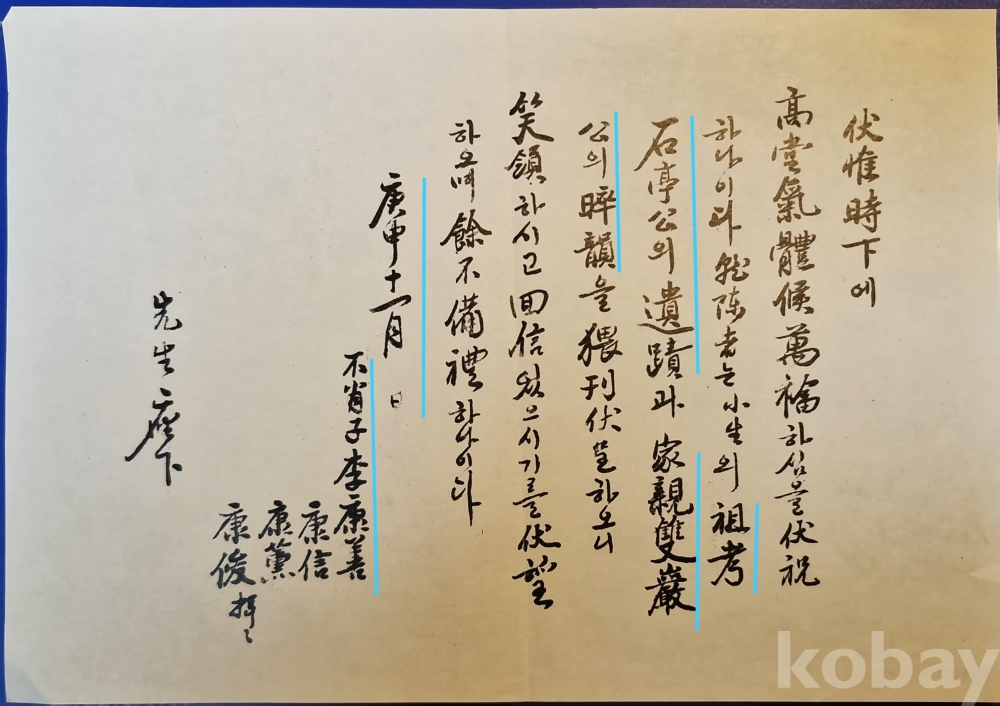 伏惟時下에
高堂氣體候萬福하심을伏祝
하나이다 就陳者는小生의 祖考
石亭公의 遺蹟과 家親雙巖
公의 睟韻을 猥刊伏呈하오니
笑領하시고 回信있으시기를伏望
하오며 餘不備禮하나이다
庚申十一月 日
不肖子 李康善
康信
康薰
康俊 拜上
先生座下
kobay